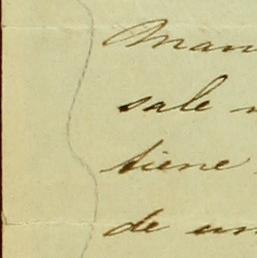 Man
sale
tiene
de un